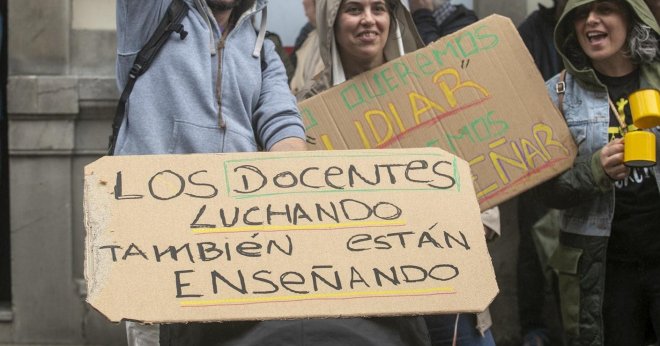 LOS DOCENTES
LUCHANDO
TAMBIÉN ESTÁN
ENSEÑANDO
QUEREMOS
UDIAR
EMOS
EÑAR